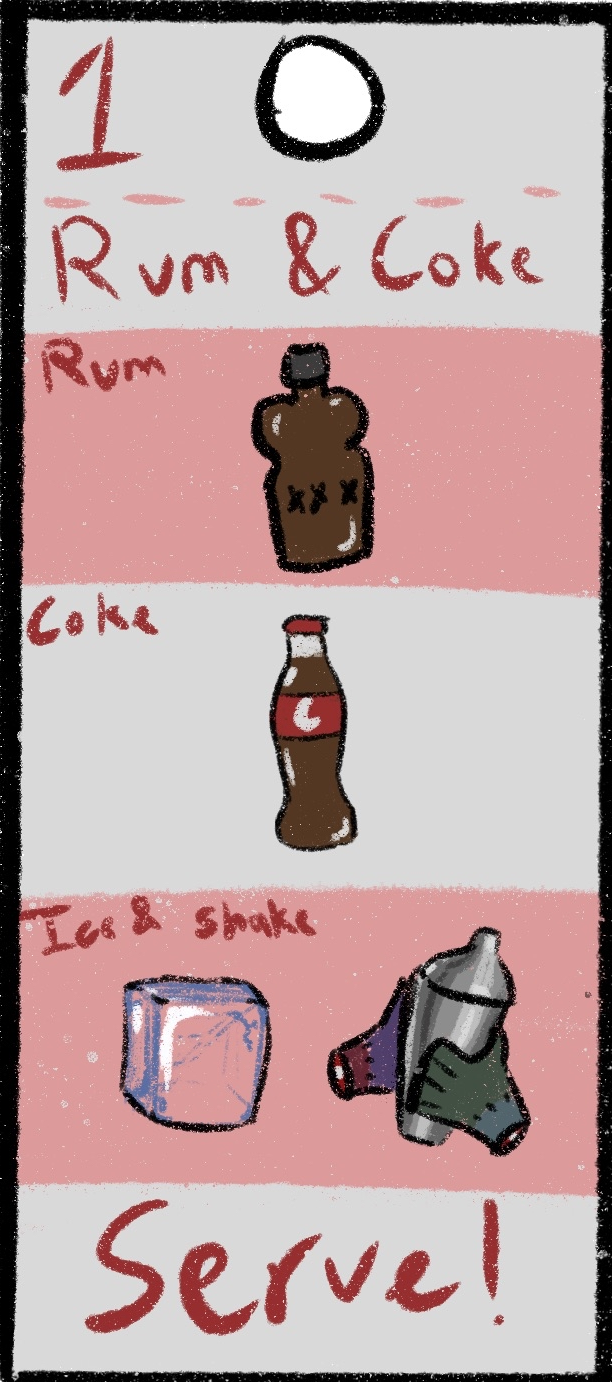 1
Rum & Coke
Rum
XXX
Coke
C
Ice & shake
Serve!